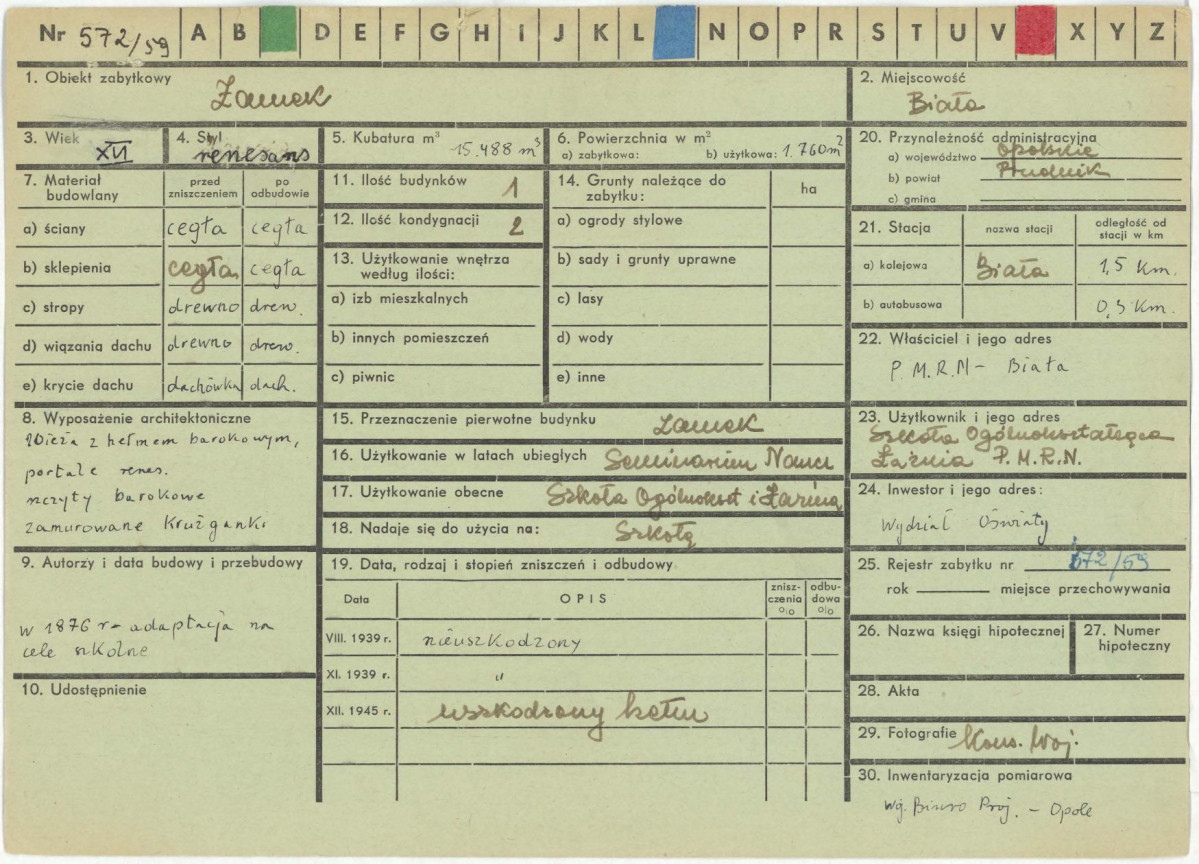 Nr 572/59 A B D E F G H I J K L N O P R S T U V X Y Z
1. Obiekt zabytkowy
Zamek
2. Miejscowość
Biała
3. Wiek
XVI
4. Styl
renesans
5. Kubatura m³
15.488 m³
6. Powierzchnia w m²
a) zabytkowa: b) użytkowa: 1.760 m²
20. Przynależność administracyjna
a) województwo opolskie
b) powiat Prudnik
c) gmina
7. Materiał budowlany
przed zniszczeniem
po odbudowie
a) ściany cegła cegła
b) sklepienia cegła cegła
c) stropy drewno drew.
d) wiązania dachu drewno drew.
e) krycie dachu dachówka dach.
11. Ilość budynków 1
12. Ilość kondygnacji 2
13. Użytkowanie wnętrza
według ilości:
a) izb mieszkalnych
b) innych pomieszczeń
c) piwnic
14. Grunty należące do
zabytku:
ha
a) ogrody stylowe
b) sady i grunty uprawne
c) lasy
d) wody
e) inne
21. Stacja
nazwa stacji
odległość od
stacji w km
a) kolejowa Biała 1,5 Km.
b) autobusowa 0,3 Km.
22. Właściciel i jego adres
P.M.R.N – Biała
8. Wyposażenie architektoniczne
Wieża z hełmem barokowym,
portale renes.
szczyty barokowe
zamurowane Krużganki
15. Przeznaczenie pierwotne budynku zamek
16. Użytkowanie w latach ubiegłych Seminarium Naucz
17. Użytkowanie obecne Szkoła Ogólnokszt i Łaźnia
18. Nadaje się do użycia na: Szkołę
23. Użytkownik i jego adres
Szkoła Ogólnokształcąca
Łaźnia P.M.R.N.
24. Inwestor i jego adres:
Wydział Oświaty
9. Autorzy i data budowy i przebudowy
w 1876 r – adaptacja na
cele szkolne
19. Data, rodzaj i stopień zniszczeń i odbudowy
Data
OPIS
znisz-
czenia
%
odbu-
dowa
%
VIII. 1939 r. nieuszkodzony
XI. 1939 r. "
XII. 1945 r. uszkodzony hełm
25. Rejestr zabytku nr 572/59
rok miejsce przechowywania
26. Nazwa księgi hipotecznej
27. Numer
hipoteczny
10. Udostępnienie
28. Akta
29. Fotografie Kons. Woj.
30. Inwentaryzacja pomiarowa
Wg. Biuro Proj. – Opole